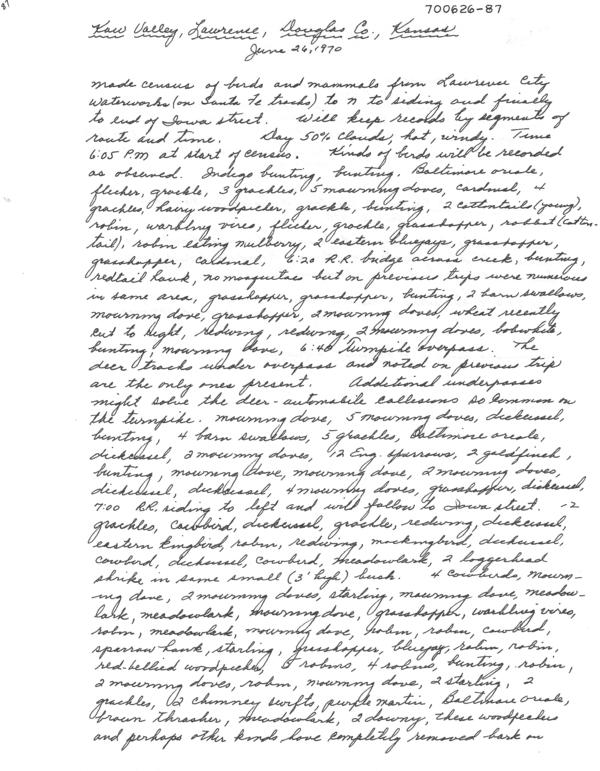 700626-87
Kaw Valley, Lawrence, Douglas Co., Kansas
June 26, 1970
made census of birds and mammals from Lawrence City
Waterworks (on Santa Fe tracks) to N to siding and finally
to end of Iowa street. Will keep records by segments of
route and time. Day 50% clouds, hot, windy. Time
6:05 PM at start of census. Kinds of birds will be recorded
as observed. Indigo bunting, bunting, Baltimore oriole,
flicker, grackle, 3 grackles, 5 mourning doves, cardinal, 4
grackles, hairy woodpecker, grackle, bunting, 2 cottontails (young),
robin, warbling vireo, flicker, grackle, grasshopper, rabbit (cotton-
tail), robin eating mulberry, 2 eastern bluejays, grasshopper,
grasshopper, cardinal, 6:20 R.R. bridge across creek, bunting,
redtail hawk, no mosquitoes but on previous trips were numerous
in same area, grasshopper, grasshopper, bunting, 2 barn swallows,
mourning dove, grasshopper, 2 mourning doves, wheat recently
cut to right, redwing, redwing, 2 mourning doves, bobwhite,
bunting, mourning dove, 6:40 Turnpike overpass. The
deer tracks under overpass and noted on previous trip
are the only ones present. Additional underpasses
might solve the deer-automobile collisions so common on
the turnpike. mourning dove, 5 mourning doves, dickcissel,
bunting, 4 barn swallows, 5 grackles, Baltimore oriole,
dickcissel, 2 mourning doves, 12 Eng. sparrows, 2 goldfinch,
bunting, mourning dove, mourning dove, 2 mourning doves,
dickcissel, dickcissel, 4 mourning doves, grasshopper, dickcissel,
7:00 RR. siding to left and will follow to Iowa street. -2
grackles, cowbird, dickcissel, grackle, redwing, dickcissel,
eastern kingbird, robin, redwing, mockingbird, dickcissel,
cowbird, dickcissel, cowbird, meadowlark, 2 loggerhead
shrike in same small (3' high) bush. 4 cowbirds, mourn-
ing dove, 2 mourning doves, starling, mourning dove, meadow-
lark, meadowlark, mourning dove, grasshopper, warbling vireo,
robin, meadowlark, mourning dove, robin, robin, cowbird,
sparrow hawk, starling, grasshopper, bluejay, robin, robin,
red-bellied woodpecker, robins, 4 robins, bunting, robin,
2 mourning doves, robin, mourning dove, 2 starling, 2
grackles, 2 chimney swifts, purple martin, Baltimore oriole,
brown thrasher, meadowlark, 2 downy, these woodpeckers
and perhaps other kinds have completely removed bark on